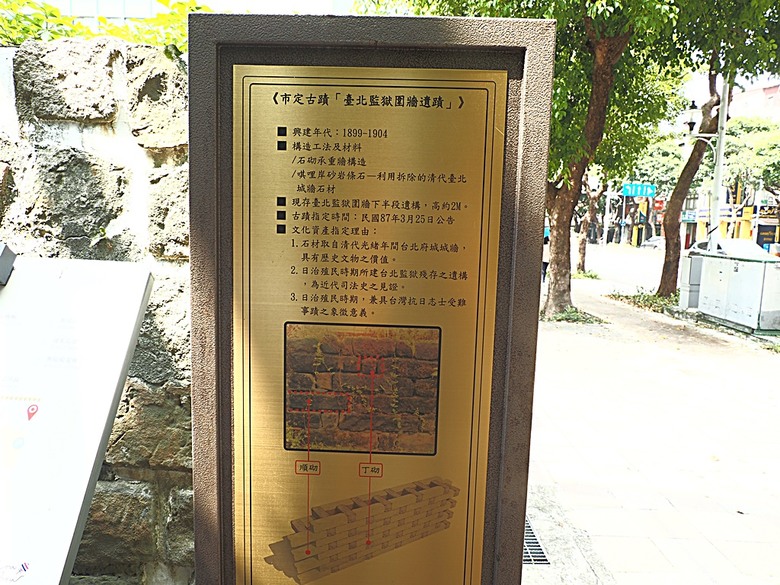 《市定古蹟「臺北監獄圍牆遺蹟」》
■ 興建年代：1899-1904
■ 構造工法及材料
/石砌承重牆構造
/唭哩岸砂岩條石—利用拆除的清代臺北
城牆石材
■ 現存臺北監獄圍牆下半段遺構，高約2M。
■ 古蹟指定時間：民國87年3月25日公告
■ 文化資產指定理由：
1.石材取自清代光緒年間台北府城城牆，
具有歷史文物之價值。
2.日治殖民時期所建台北監獄殘存之遺構
，為近代司法史之見證。
3.日治殖民時期，兼具台灣抗日志士受難
事蹟之象徵意義。
順砌
丁砌